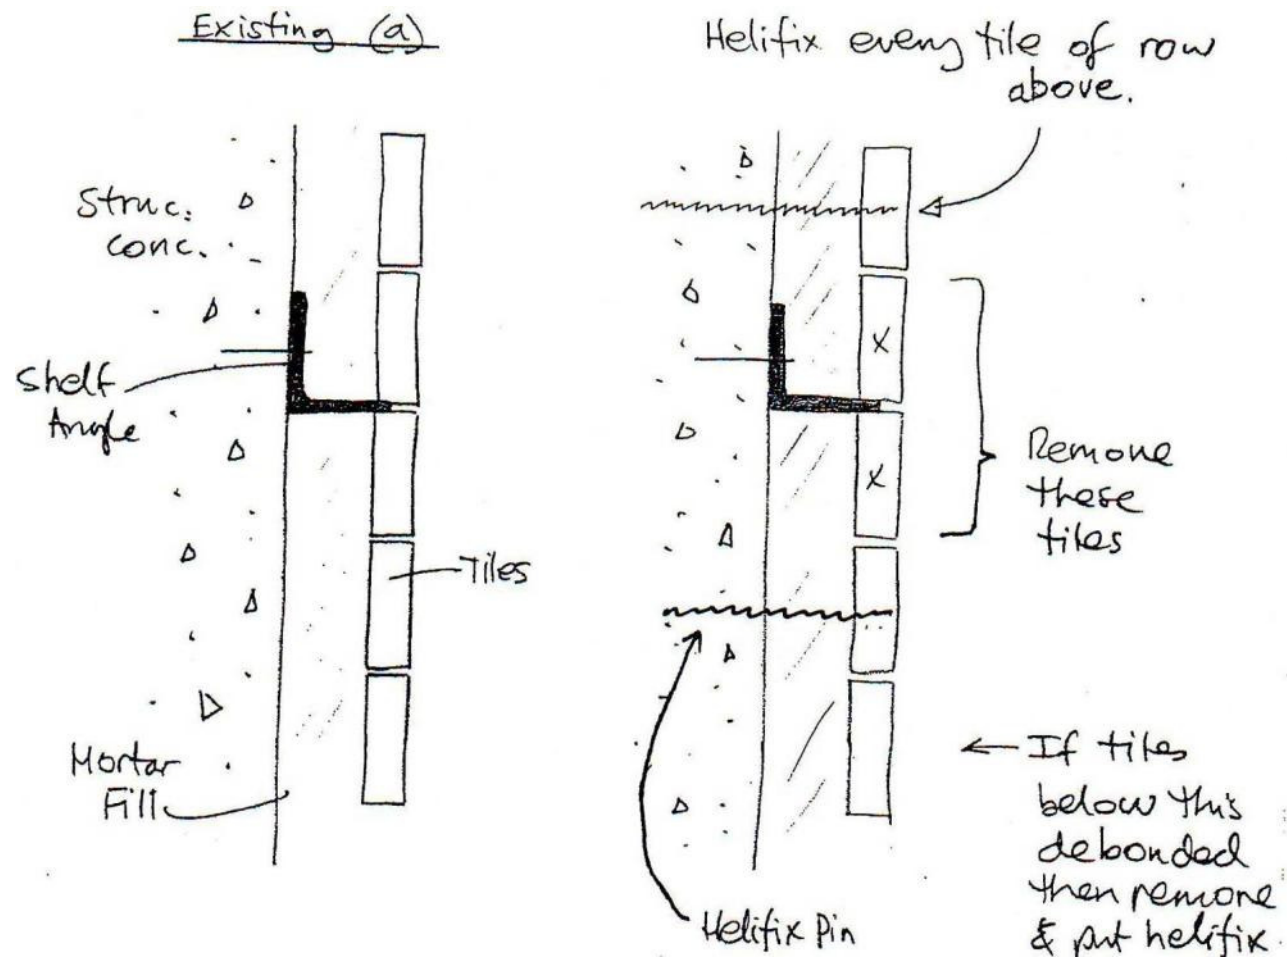 Existing (a)
Struc.
Conc.
Shelf
Angle
Tiles
Mortar
Fill
Helifix every tile of row
above.
X
X
Remove
these
tiles
Helifix Pin
If tiles
below this
debonded
then remove
& put helifix.